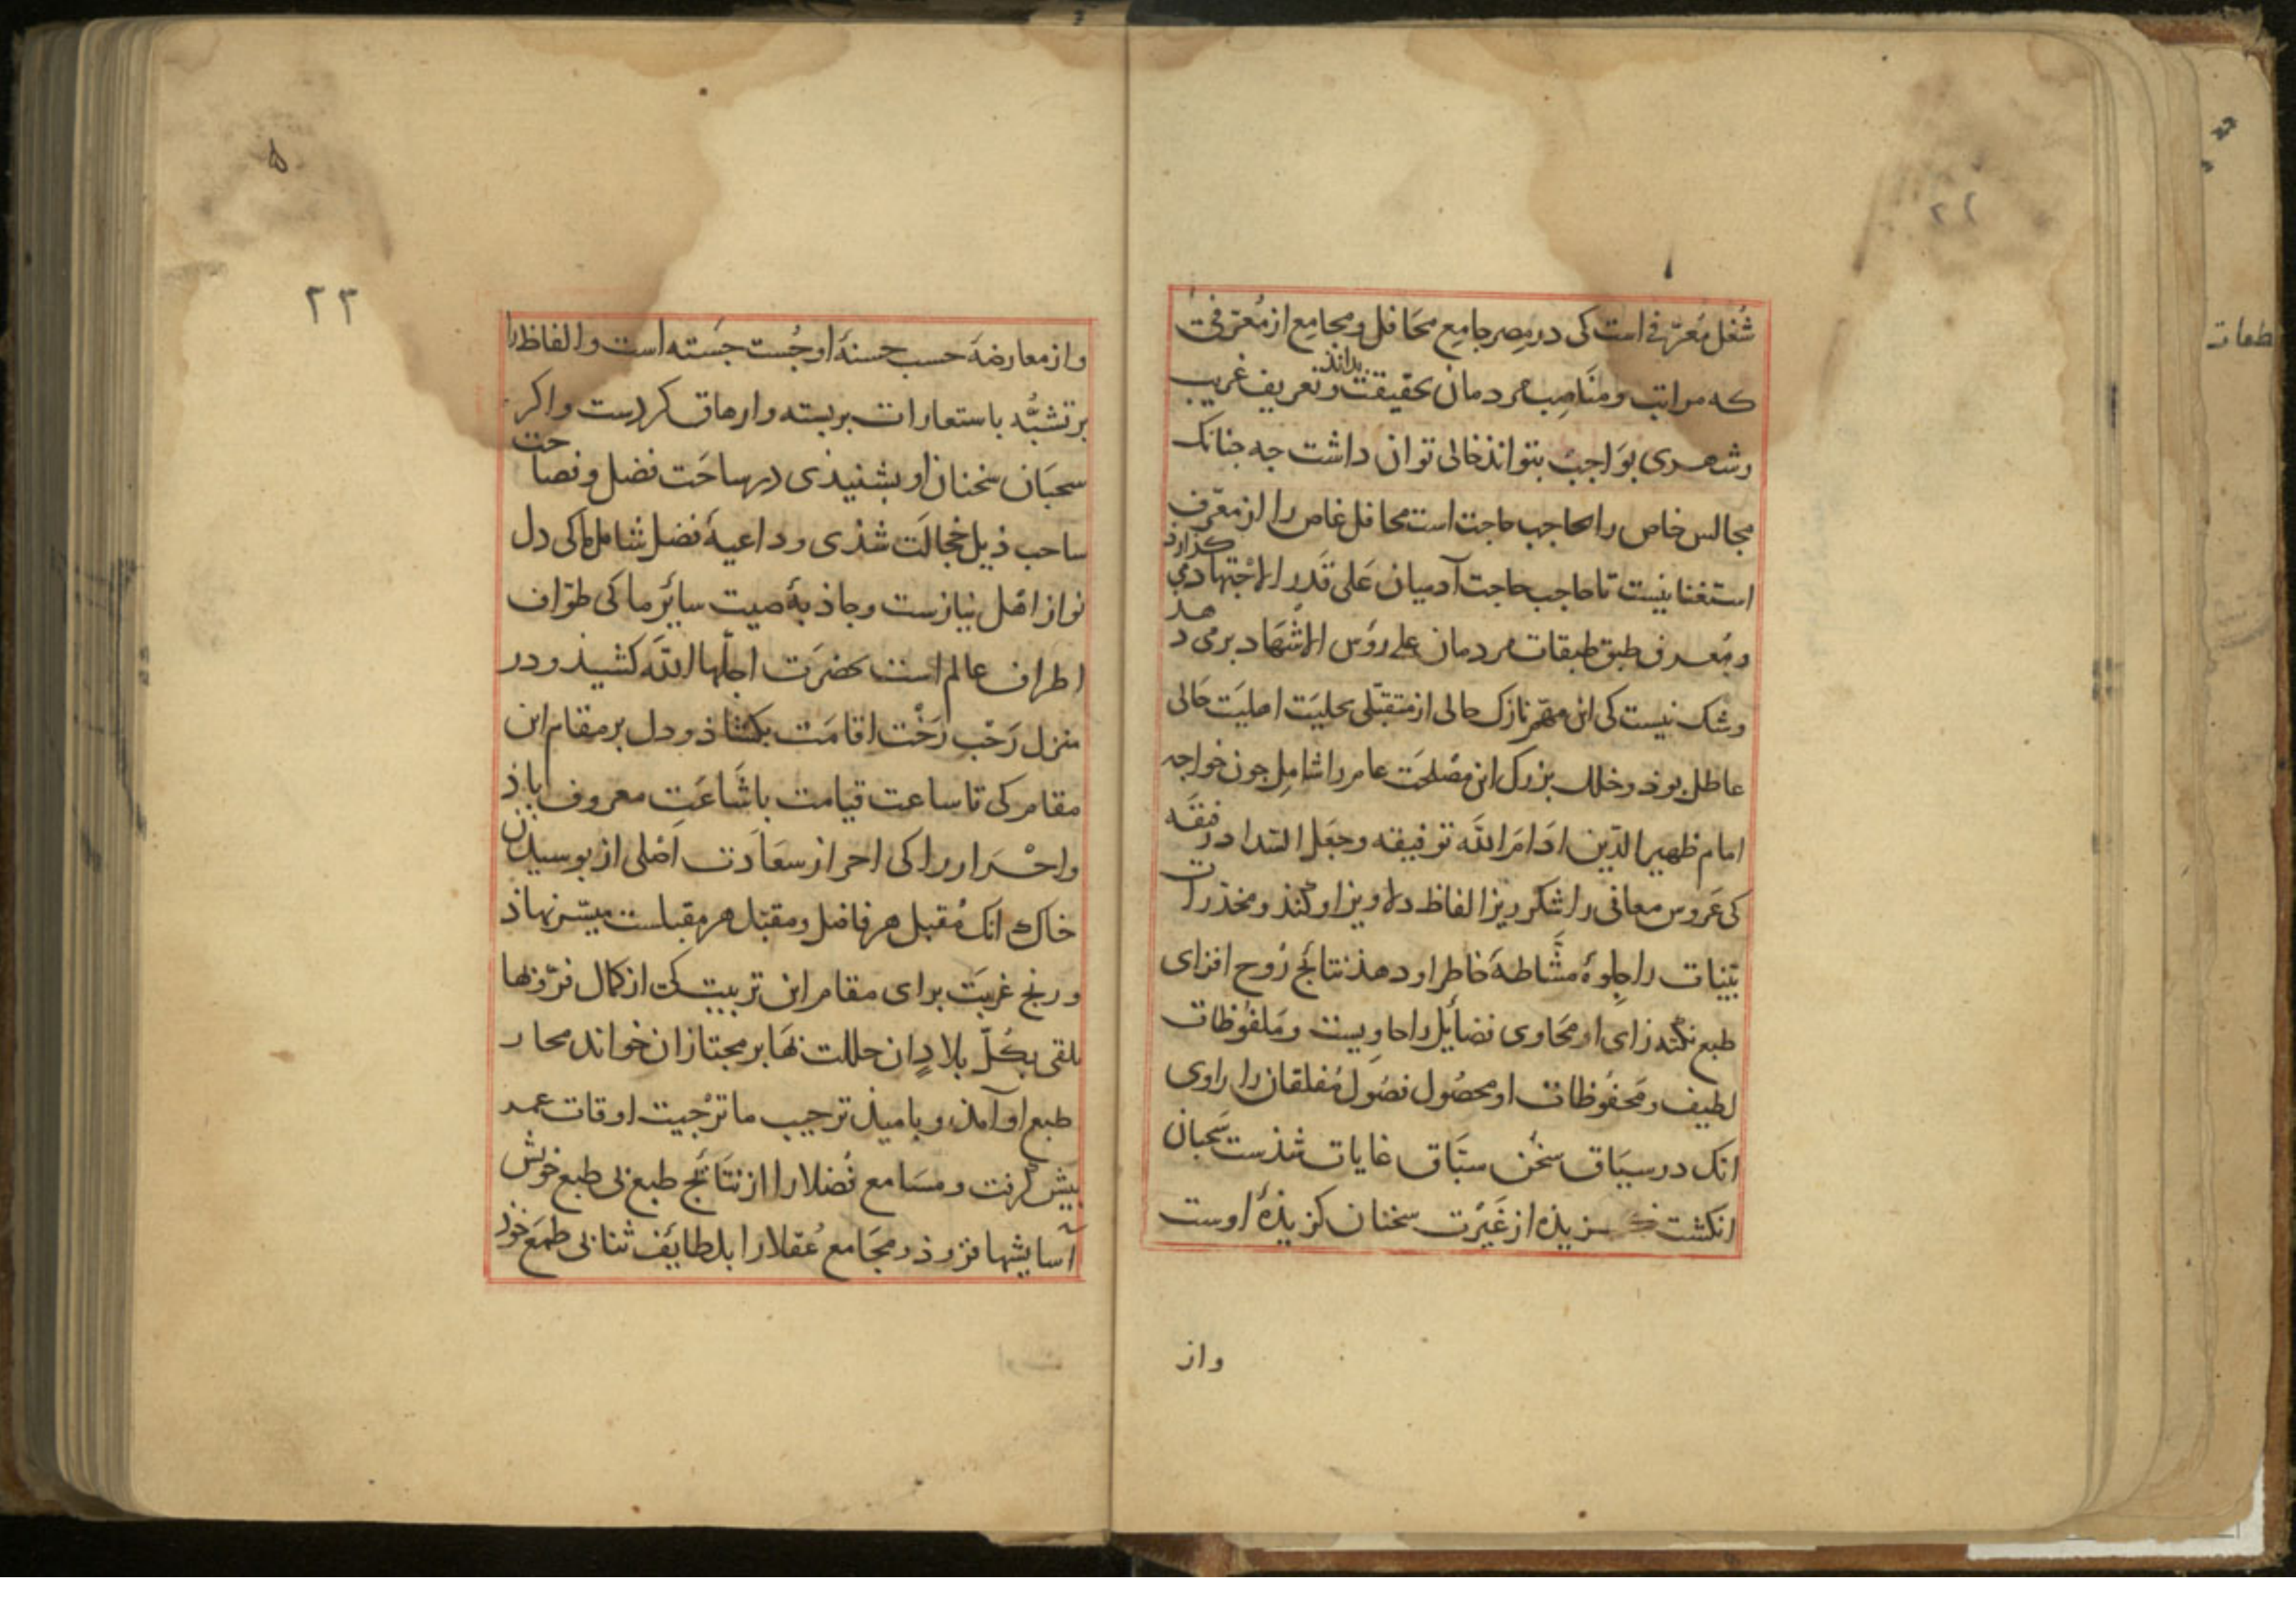 شُغل مُعرّفی است کی در مصر جامع محَافل و مجامع از مُعرّفی
که مراتب و مناصِب مردمان بحقیقت بداند و تعریف غریب
و شهری بوَاجب بتواند خالی توان داشت جه جنانک
مجالس خاص را بحاجب حاجت است محافل غاص را از معّرف
استغنا نیست تا حاجب حاجت آدمیان عَلی قَدرِ الاجْتِهاد می گزارد
و مُعرف طبق طبقات مردمان علی روَس الاشَهاد بر می دهد
و شک نیست کی این مهمّ نازک حالی از متقبّلی بحلیَت اهلیَت حَالی
عاطل بوذ و خلل بزرک این مصْلحَت عام را شامل جون خواجه
امام ظهیر الدّین ادَامَ اللّه توفیقه و جعَل السَداد رفیقَه
کی عَروس معانی را شکر ریز الفاظ دلاویز او کند و مخذرات
بَنیات را جلوهٔ مشّاطهٔ خاطر او دهذ نتائج رُوح افزای
طبع نکته زای او محَاوی فضایٔل را حاویست و مَلفوُظات
لطیف و مَحفوُظات او محصُول فصُول مُفلقان را راوی
انک در سیَاق سخُن سبَّاق غایات شذست سَحبان
انکشت کزیذه از غَیْرَت سخنان کزیذهٔ اوست
واز
۲۳
و از معارضهٔ حسب حسنهٔ او جُست جَسته است و الفاظ را
بر تشبُّه باستعارات بر بسته و ارهاق کردست و اکر
سحبَان سخنان او بشنیذی در ساحَت فضل و فصاحت
ساحب ذیل خجالَت شذی و داعیهٔ فضل شامل ما کی دل
نواز اهْل نیازست و جاذبهٔ صیت سایٔر ما کی طوّاف
اطراف عالم است بحضرَت اجلّها اللّه کشیذ و در
منزل رَحْب رَخْت اقامَت بکشاذ و دل بر مقام این
مقام کی تا ساعت قیامت باشَاعَتِ معروف اباذ
و احْرار را کی احراز سعَادت اصْلی از بوسیدن
خاک انک مُقبل هر فاضل و مقبّل هر مقبلست میسّر نهاذ
و رنج غربَت برای مقام این تربیت کت از کمال فرّ و بها
تلقی بکُلّ بلادٍ ان حللت بَها بر مجتازان خواند محار
طبع او آمذ و بامیذ ترجیب ما ترْجیت اوقات عمر
بیش کرفت و مسَامع فُضلا را از نتَائج طبع بی طبع خویش
آسایشها فزوذ و مجَامع عُقلا را بلطایٔف ثنا بی طمَع خوذ